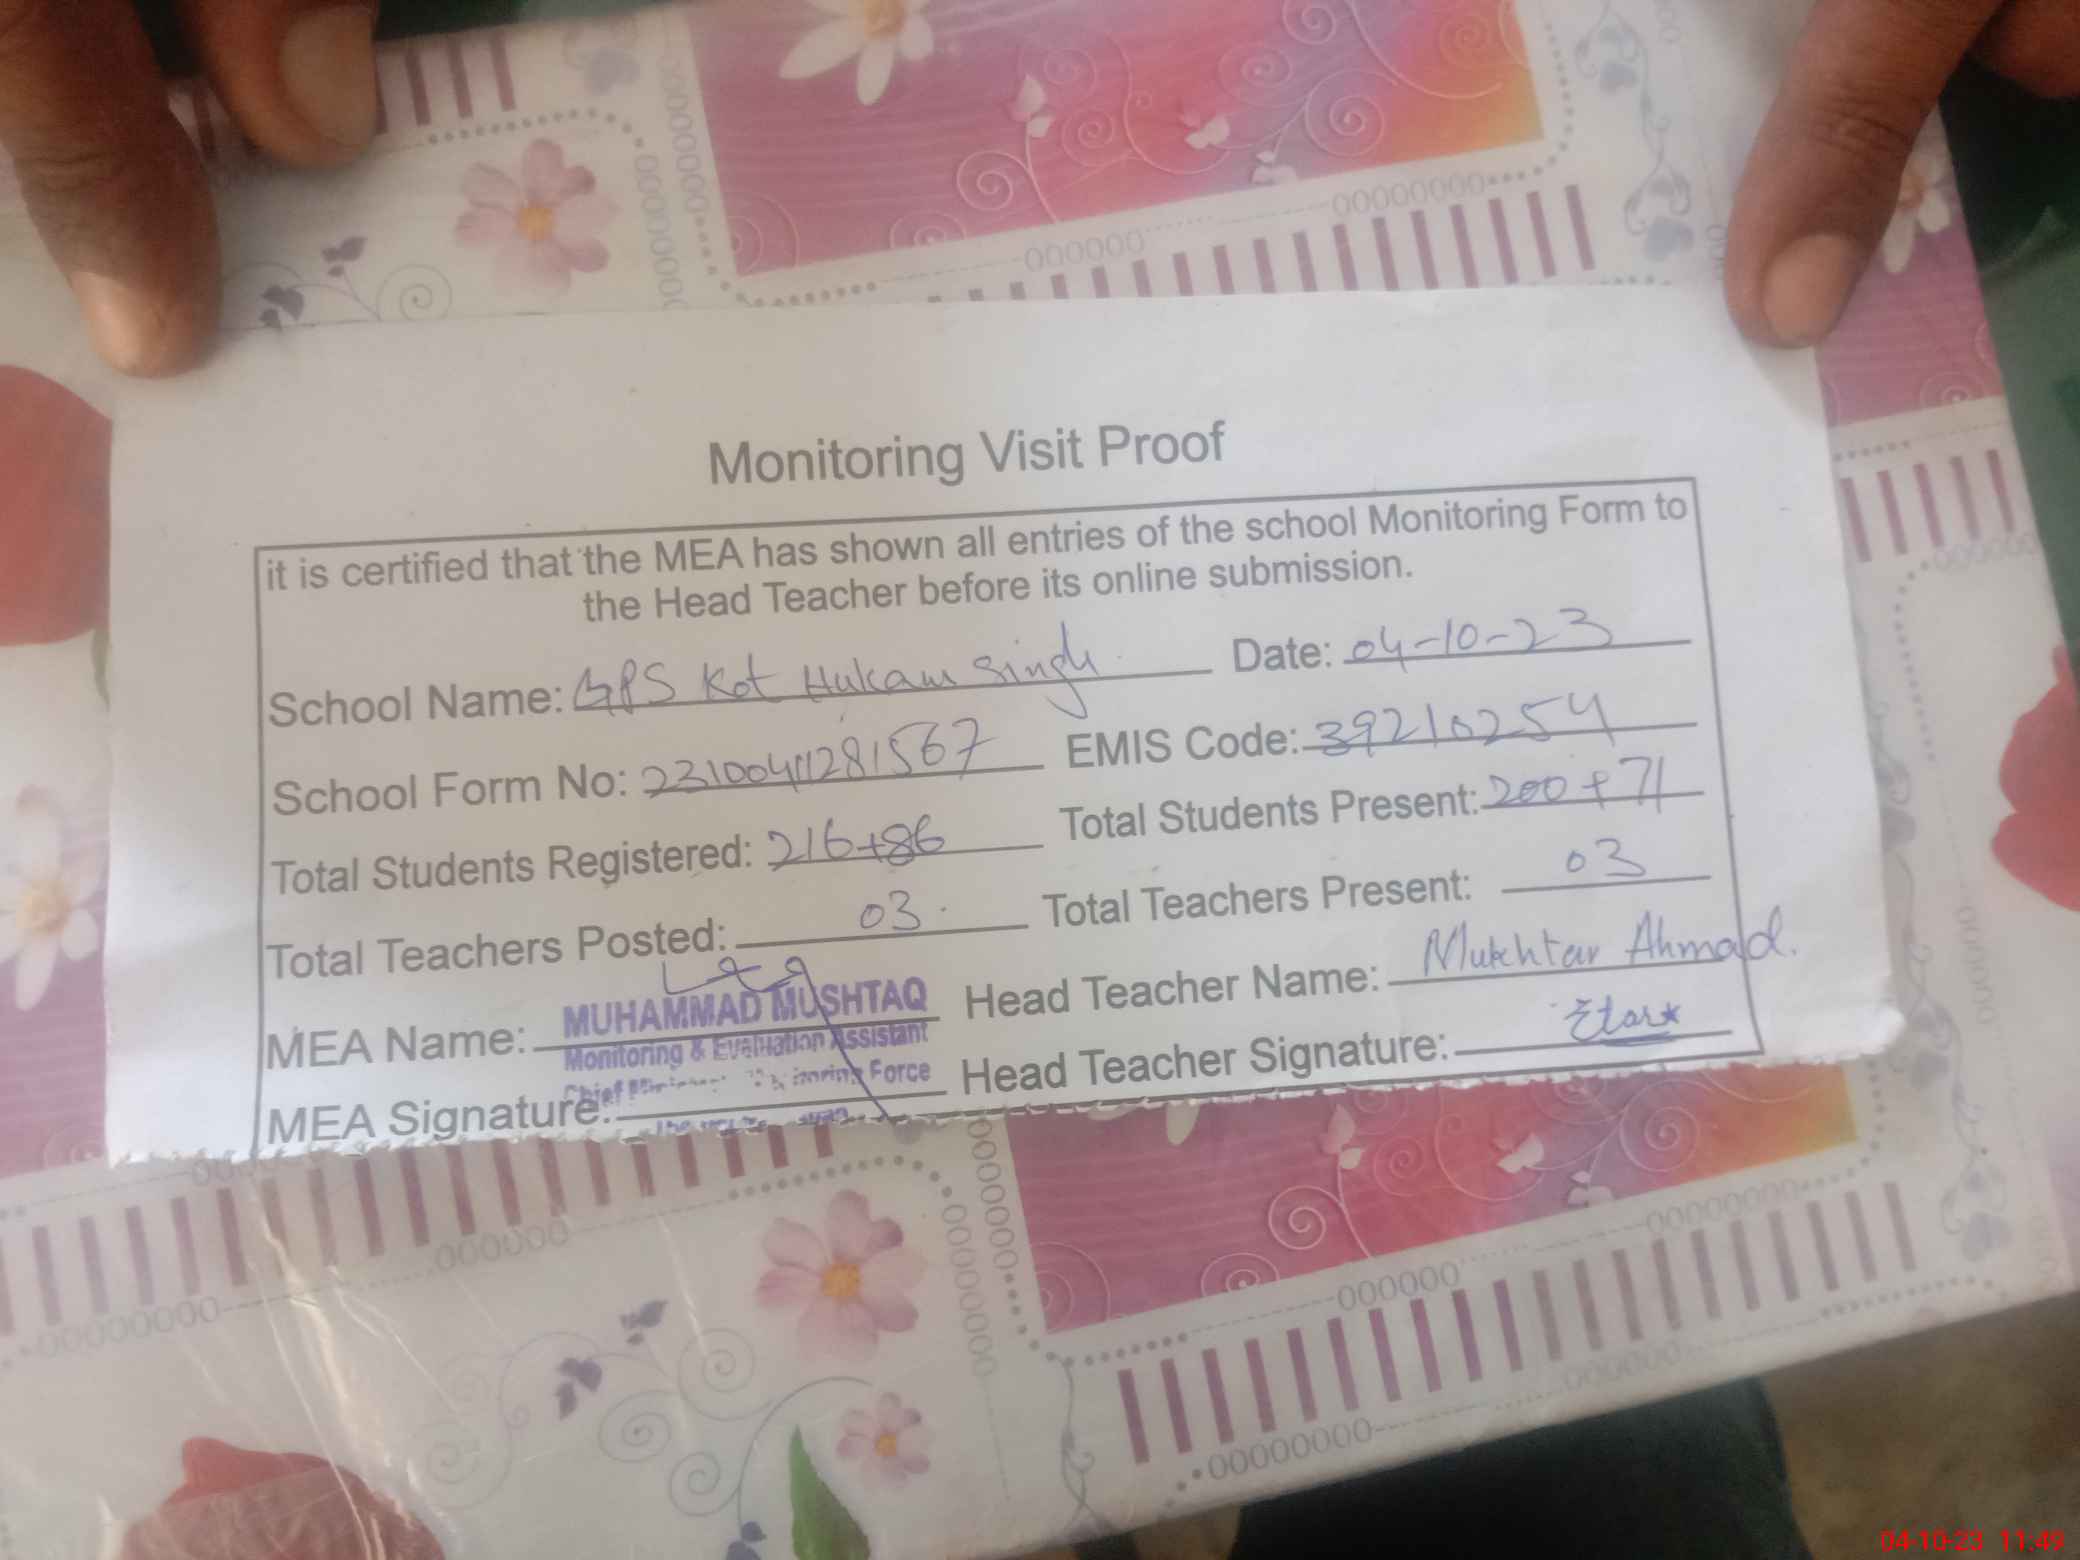 Monitoring Visit Proof
it is certified that the MEA has shown all entries of the school Monitoring Form to
the Head Teacher before its online submission.
School Name: GPS Kot Hukam Singh Date: 04-10-23
School Form No: 2310041281567 EMIS Code: 39210254
Total Students Registered: 216+86 Total Students Present: 200+71
Total Teachers Posted: 03 Total Teachers Present: 03
MEA Name: MUHAMMAD MUSHTAQ Head Teacher Name: Mukhtar Ahmad.
Monitoring & Evaluation Assistant
Chief Force
MEA Signature: Head Teacher Signature:
04-10-23 11:49